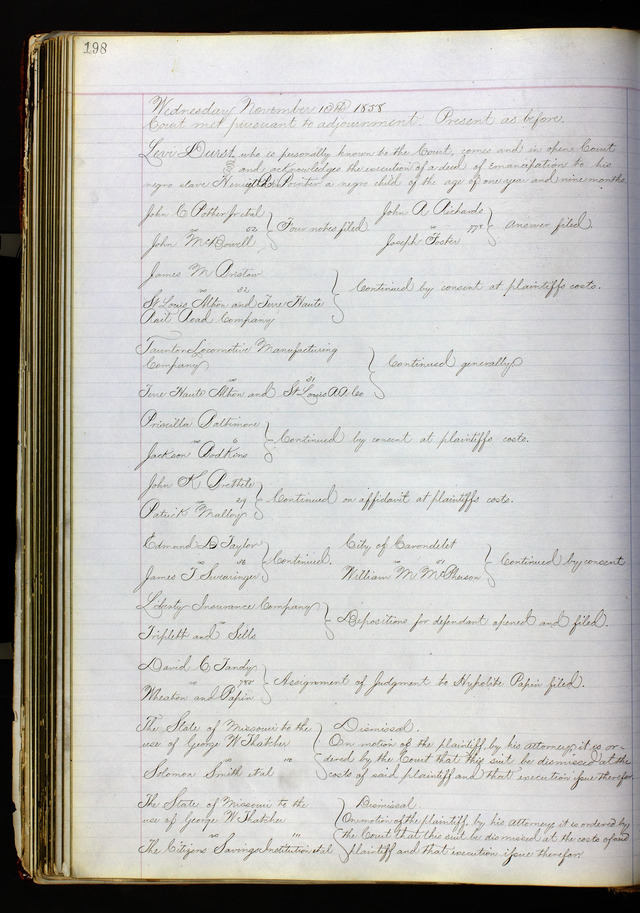 198
Wednesday November 10th 1858
Court met pursuant to adjournment. Present as before.
Levi Durst, who is personally known to the Court, comes and in open Court
and acknowledges the execution of a deed of emancipation to his
negro slave Pointer a negro child of the age of one year and nine months
John C Potter et al
vs 52
John McDowell
Four notes filed
John A Richards
vs 774
Joseph Foster
Answer filed.
James M
vs 32
St Louis Alton and Terre Haute
Rail Road Company
Continued by consent at plaintiffs costs.
Taunton Locomotive Manufacturing
Company
vs 31
Terre Haute Alton and St Louis RR Co
Continued generally
Priscilla Baltimore
vs 6
Jackson Hodkins
Continued by consent at plaintiffs costs.
John K
vs 29
Patrick Malloy
Continued on affidavit at plaintiffs costs.
Edmund D Taylor
vs 56
James T Swearinger
Continued.
City of Carondelet
vs 51
William M McPherson
Continued by consent
Liberty Insurance Company
vs
Triplett and Sells
Depositions for defendant opened and filed.
David C Tandy
vs 785
Wheaton and Papin
Assignment of Judgment to Hypolite Papin filed.
The State of Missouri to the
use of George W Thatcher
vs 110
Solomon Smith et al
Dismissal.
On motion of the plaintiff by his attorney, it is or-
dered by the Court that this suit be dismissed at the
costs of said plaintiff and that execution issue therefor.
The State of Missouri to the
use of George W Thatcher
vs 111
The Citizens Savings Institution et al
Dismissal
On motion of the plaintiff, by his attorney it is ordered by
the Court that this suit be dismissed at the costs of said
plaintiff and that execution issue therefor.